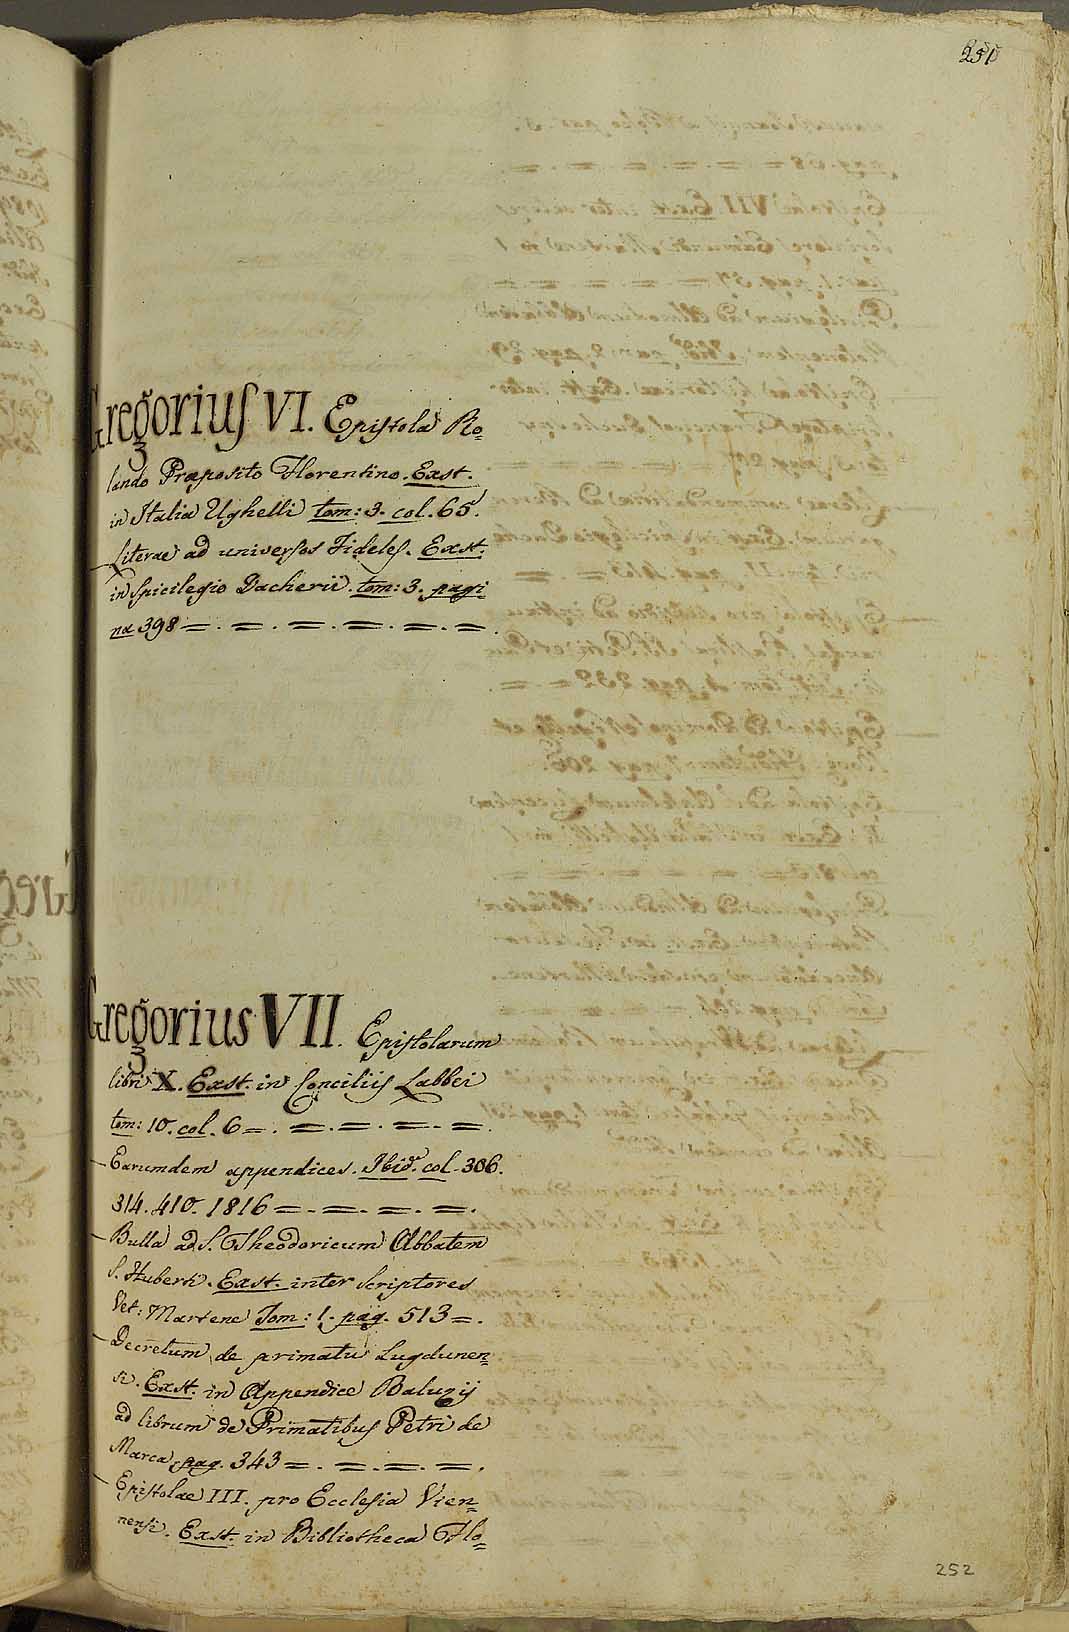 251
Gregorius VI. Epistola Ro=
lando Præposito Florentino. Exst.
in Italia Ughelli tom: 3. col. 65.
Literae ad universos Fideles. Exst.
in Spicilegio Dacherii. tom: 3. pagi
na 398 = . = . = . = . = . = .
Gregorius VII. Epistolarum
libri X. Exst. in Conciliis Labbei
tom: 10. col. 6 = . = . = . = . = .
Earumdem appendices. Ibid. col. 306.
314. 410. 1816 = . = . = . = .
Bulla ad S. Theodoricum Abbatem
S. Huberti. Exst. inter Scriptores
Vet: Martene Tom: 1. pag. 513 = .
Decretum de primatu Lugdunen=
si. Exst. in Appendice Baluzij
ad librum de Primatibus Petri de
Marca pag. 343 = . = . = . = .
Epistolae III. pro Ecclesia Vien=
nensi. Exst. in Bibliotheca Flo=
252